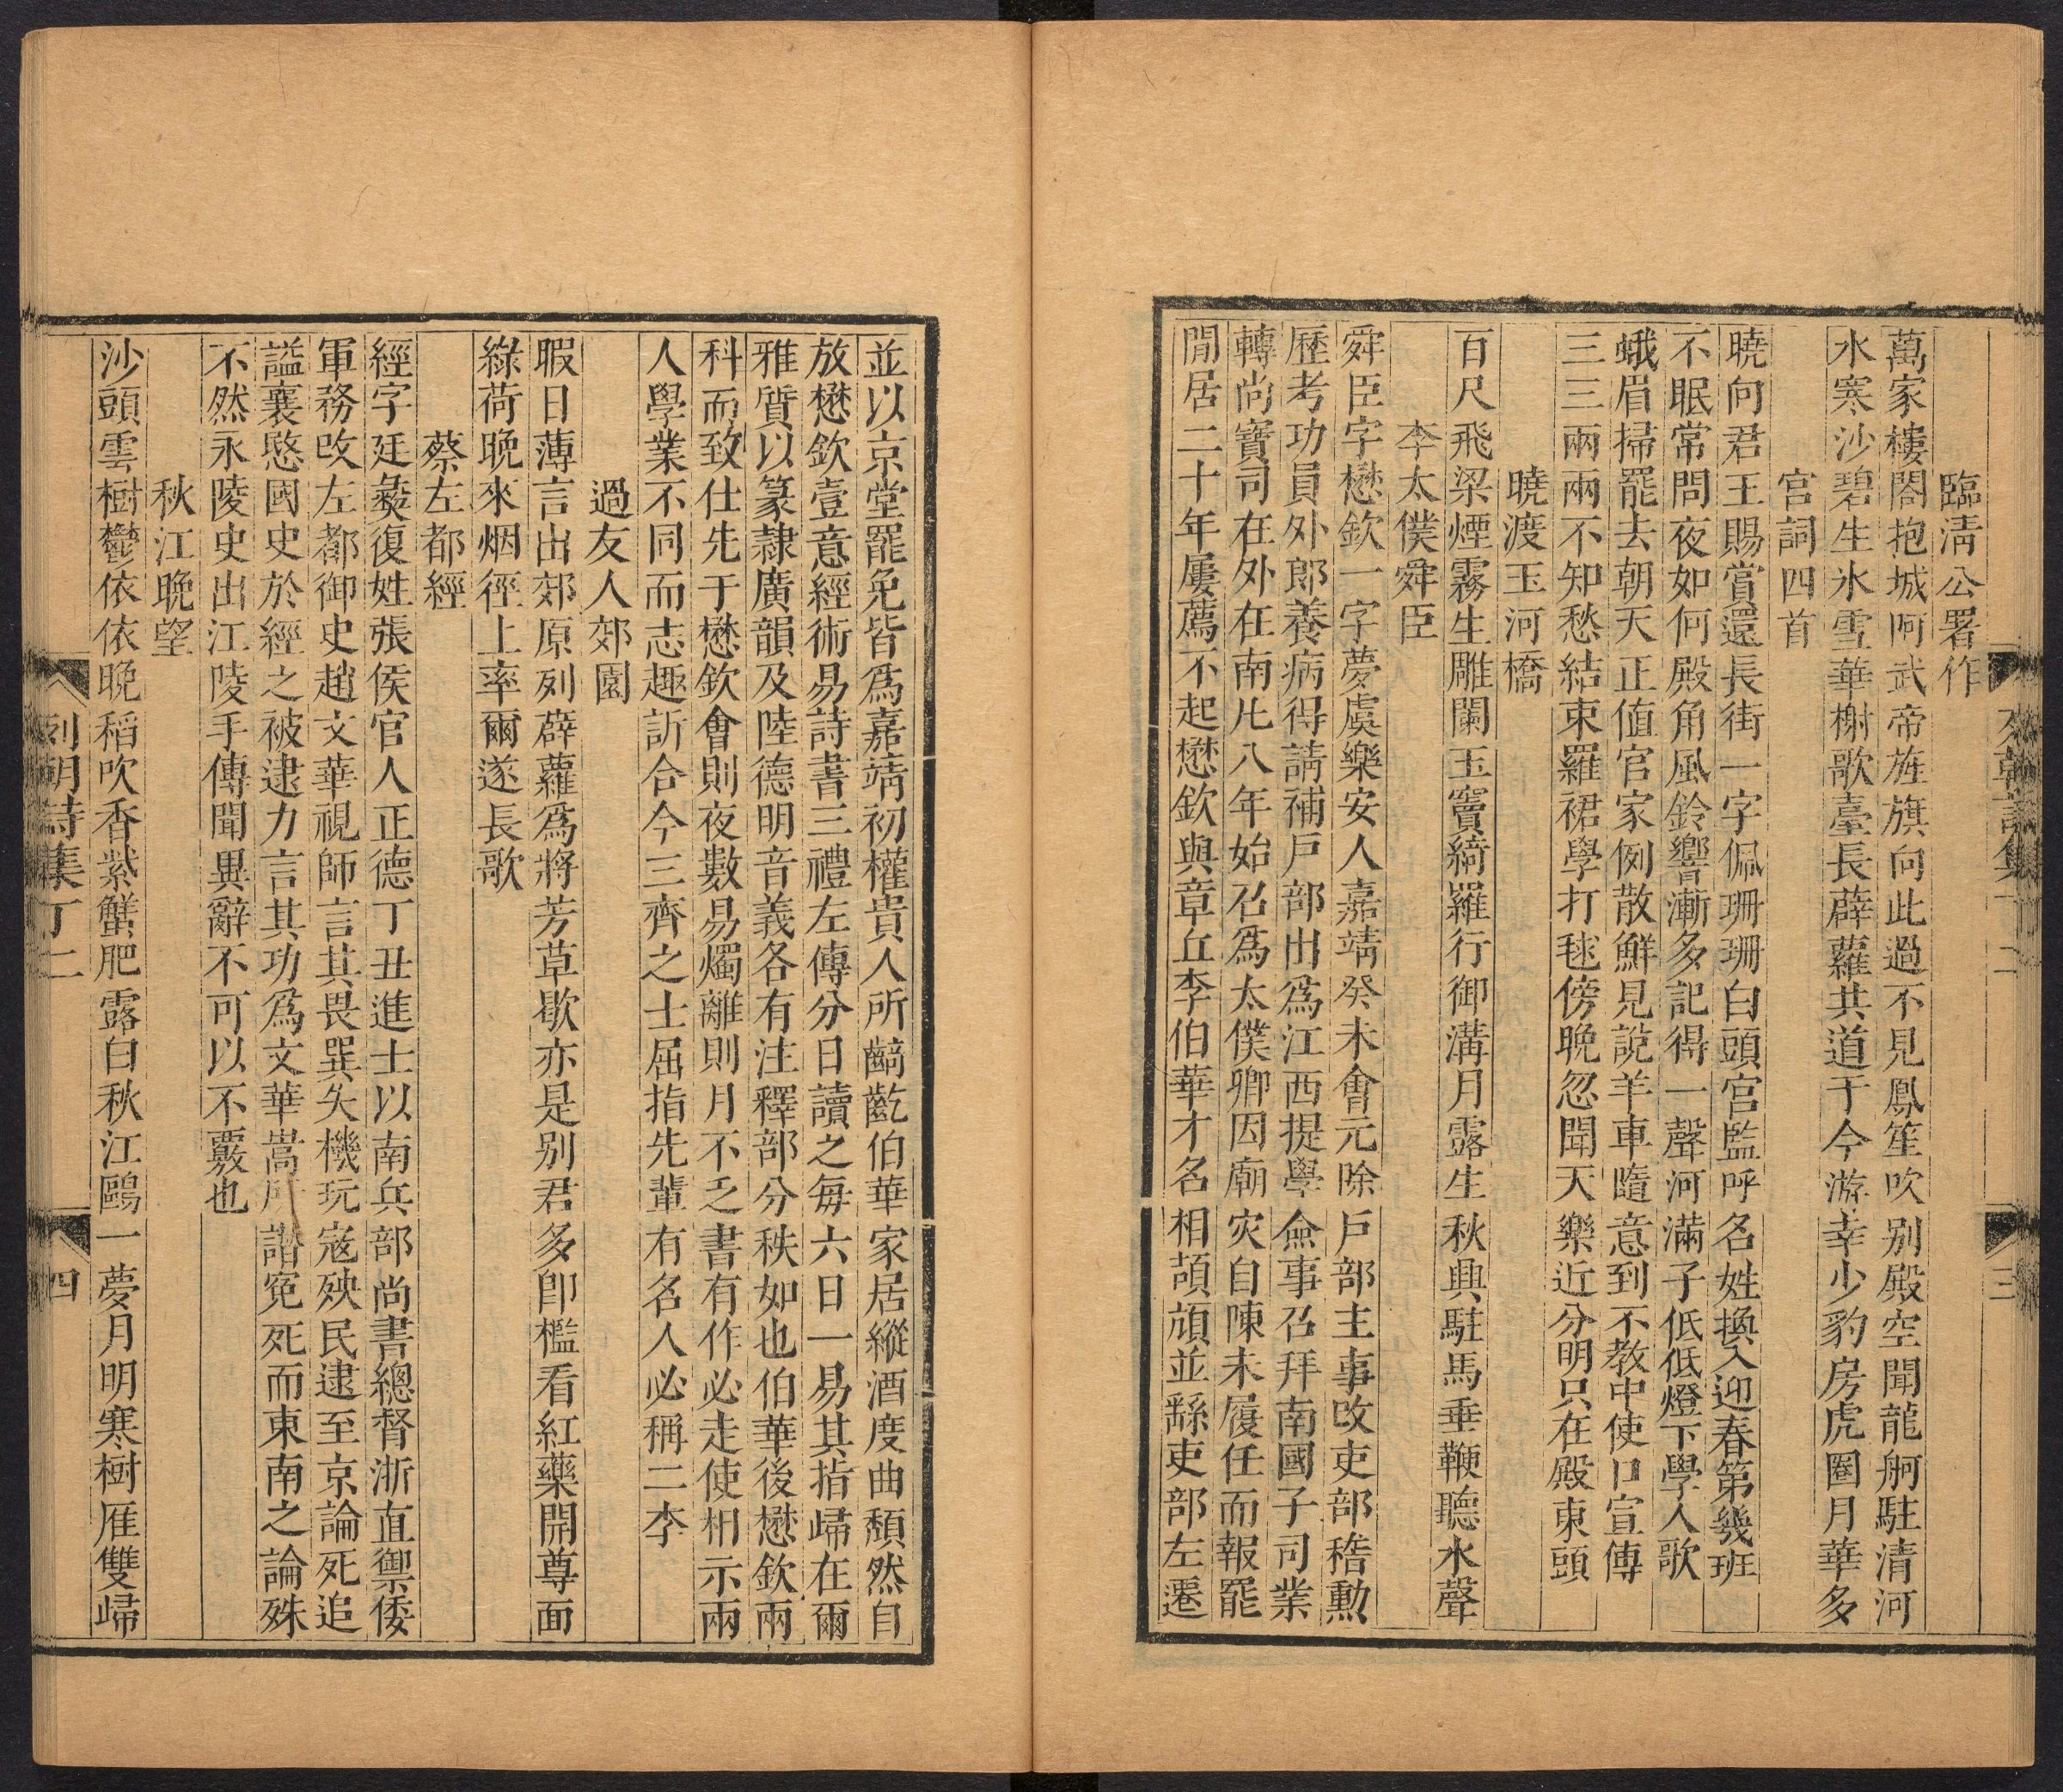 臨淸公署作
萬家樓閣抱城阿武帝旌旗向此過不見鳳笙吹別殿空聞龍舸駐清河
水寒沙碧生氷雪華榭歌臺長薜蘿共道于今游幸少豹房虎圈月華多
宮詞四首
曉向君王賜賞還長街一字佩珊珊白頭宮監呼名姓換入迎春第幾班
不眠常問夜如何殿角風鈴響漸多記得一聲河滿子低低燈下學人歌
蛾眉掃罷去朝天正値官家例散鮮見説羊車隨意到不教中使口宣傳
三三兩兩不知愁結束羅裙學打毬傍晩忽聞天樂近分明只在殿東頭
曉渡玉河橋
百尺飛梁煙霧生雕闌玉竇綺羅行御溝月露生秋興駐馬垂鞭聽水聲
李太僕舜臣
舜臣字懋欽一字夢虞樂安人嘉靖癸未會元除戶部主事改吏部稽勳
歷考功員外郎養病得請補戶部出爲江西提學僉事召拜南國子司業
轉尚寶司在外在南凡八年始召爲太僕卿因廟灾自陳未履任而報罷
閒居二十年屢薦不起懋欽與章丘李伯華才名相頡頏並繇吏部左遷
列朝詩集丁二
三
並以京堂罷免皆爲嘉靖初權貴人所齮齕伯華家居縱酒度曲頹然自
放懋欽壹意經術易詩書三禮左傳分日讀之每六日一易其指歸在爾
雅質以篆隷廣韻及陸德明音義各有注釋部分秩如也伯華後懋欽兩
科而致仕先于懋欽會則夜數易燭離則月不乏書有作必走使相示兩
人學業不同而志趣訢合今三齊之士屈指先輩有名人必稱二李
過友人郊園
暇日薄言出郊原列薜蘿爲將芳草歇亦是別君多卽檻看紅藥開尊面
綠荷晩來烟徑上率爾遂長歌
蔡左都經
經字廷彝復姓張侯官人正德丁丑進士以南兵部尚書總督浙直禦倭
軍務改左都御史趙文華視師言其畏巽失機玩寇殃民逮至京論死追
謚襄愍國史於經之被逮力言其功爲文華嵩所譖寃死而東南之論殊
不然永陵史出江陵手傳聞異辭不可以不覈也
秋江晩望
沙頭雲樹鬱依依晩稻吹香紫蟹肥露白秋江鷗一夢月明寒樹雁雙歸
列朝詩集丁二
四